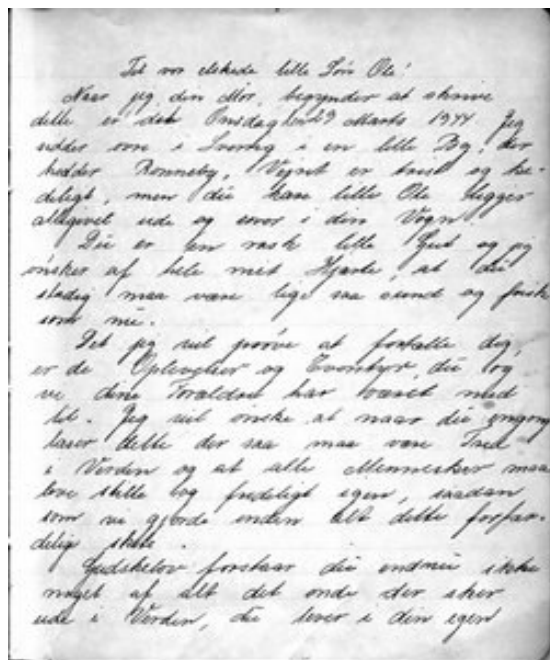 Til vor elskede lille Søn Ole!
Naar jeg, din Mor, begynder at skrive
dette er det Onsdag den 29 Marts 1944. Jeg
sidder ovre i Sverrig i en lille By, der
hedder Ronneby, Vejret er trist og ke-
deligt, men du kære lille Ole ligger
alligevel ude og sover i din Vogn.
Du er en rask lille Gut og jeg
ønsker af hele mit Hjærte, at du
stadig maa være lige saa sund og frisk
som nu.
Det jeg vil prøve at fortælle dig,
er de Oplevelser og Eventyr, du og
vi dine Forældre har været med
til. Jeg vil ønske at naar du engang
læser dette der saa maa være Fred
i Verden og at alle Mennesker maa
leve stille og fredeligt igen, saadan
som vi gjorde inden alt dette forfær-
delig skete.
Gudskelov forstaar du endnu ikke
noget af alt det onde der sker
ude i Verden, du lever i din egen